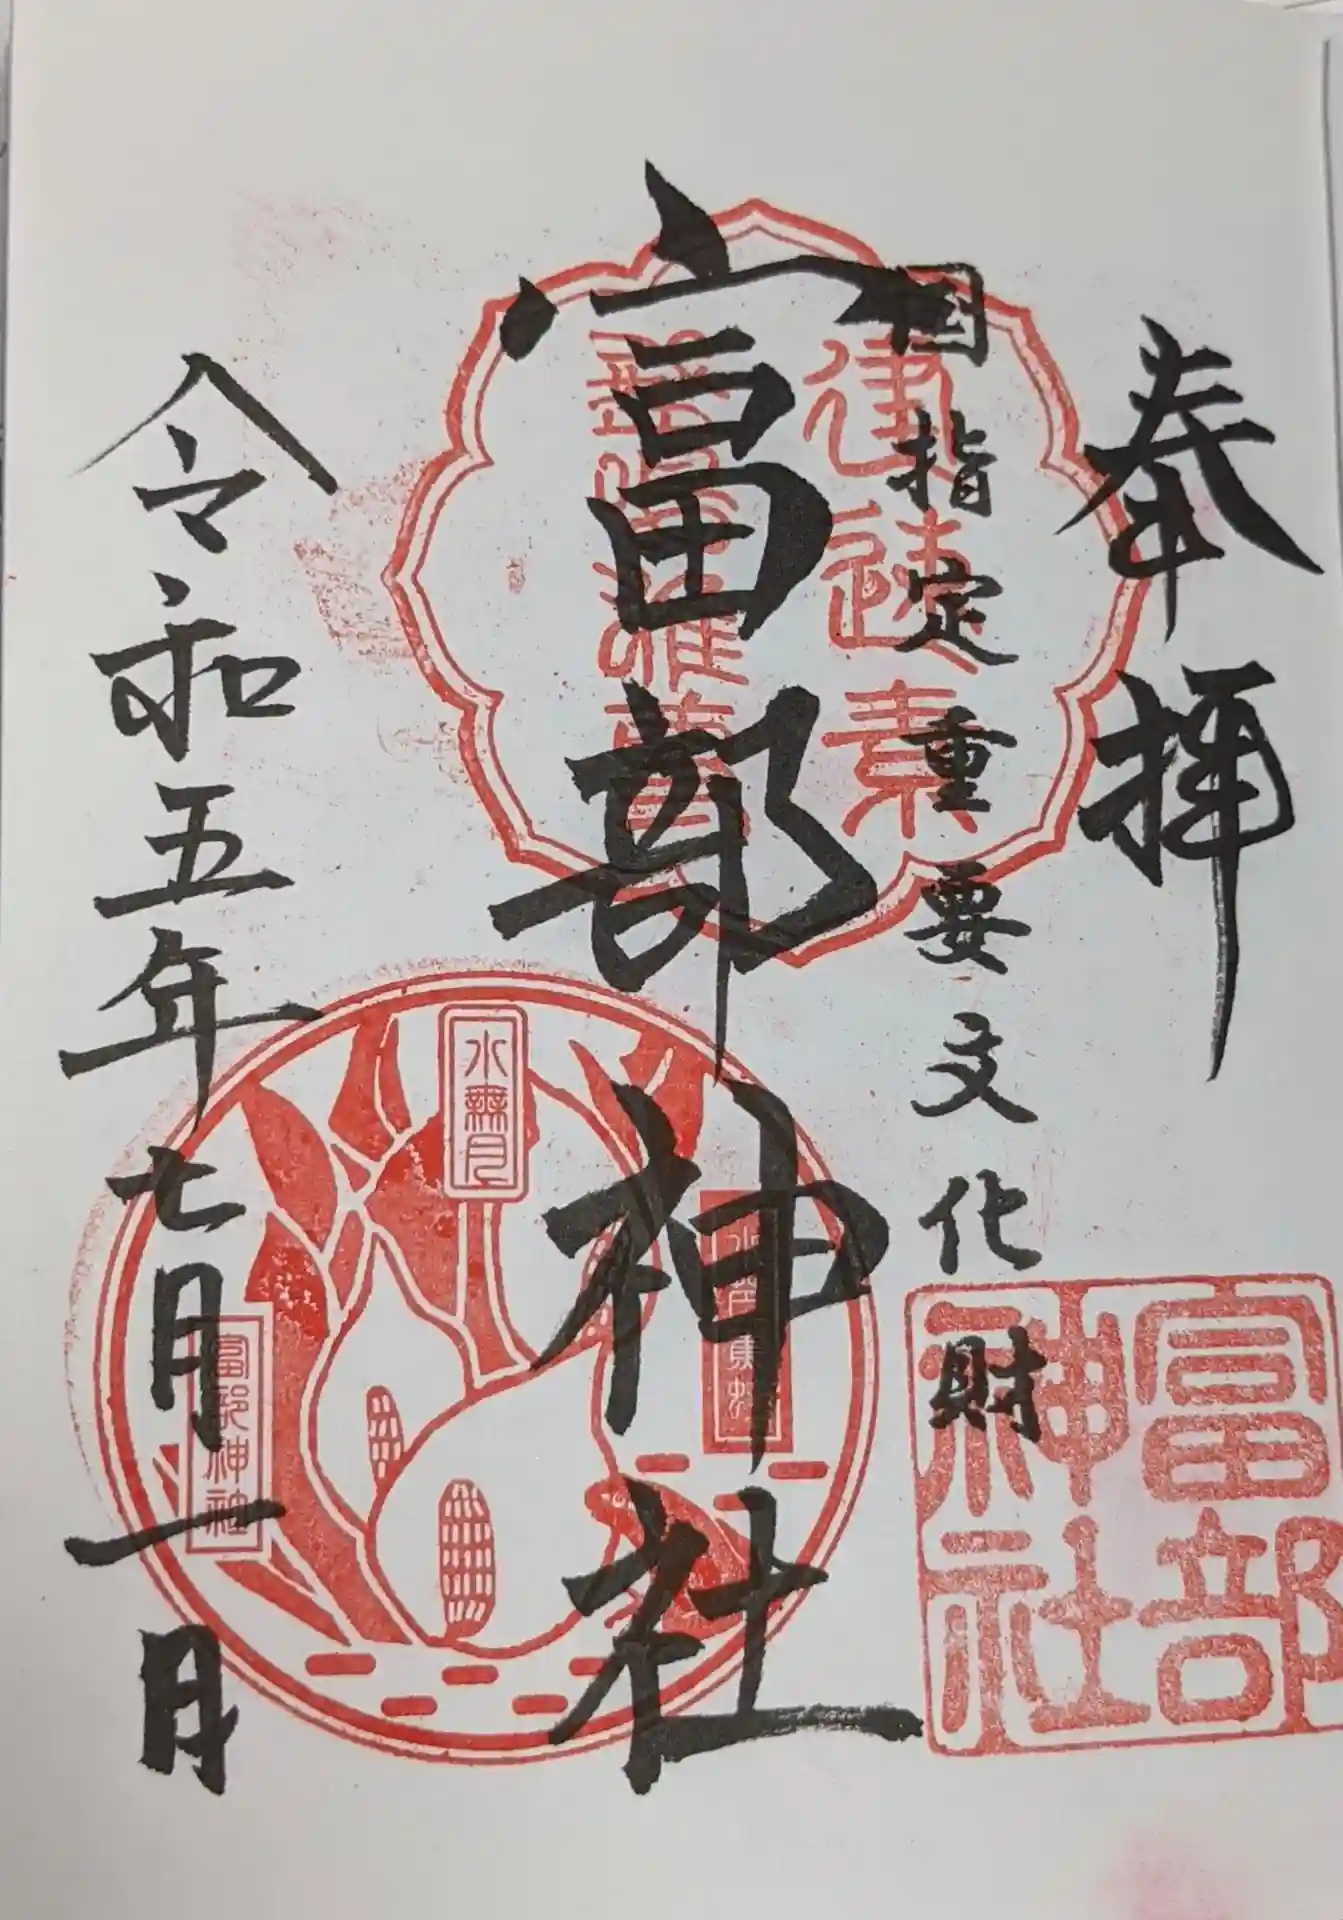 奉拝
国指定重要文化財
富部神社
富部神社
水無月
富部神社
令和五年七月一日